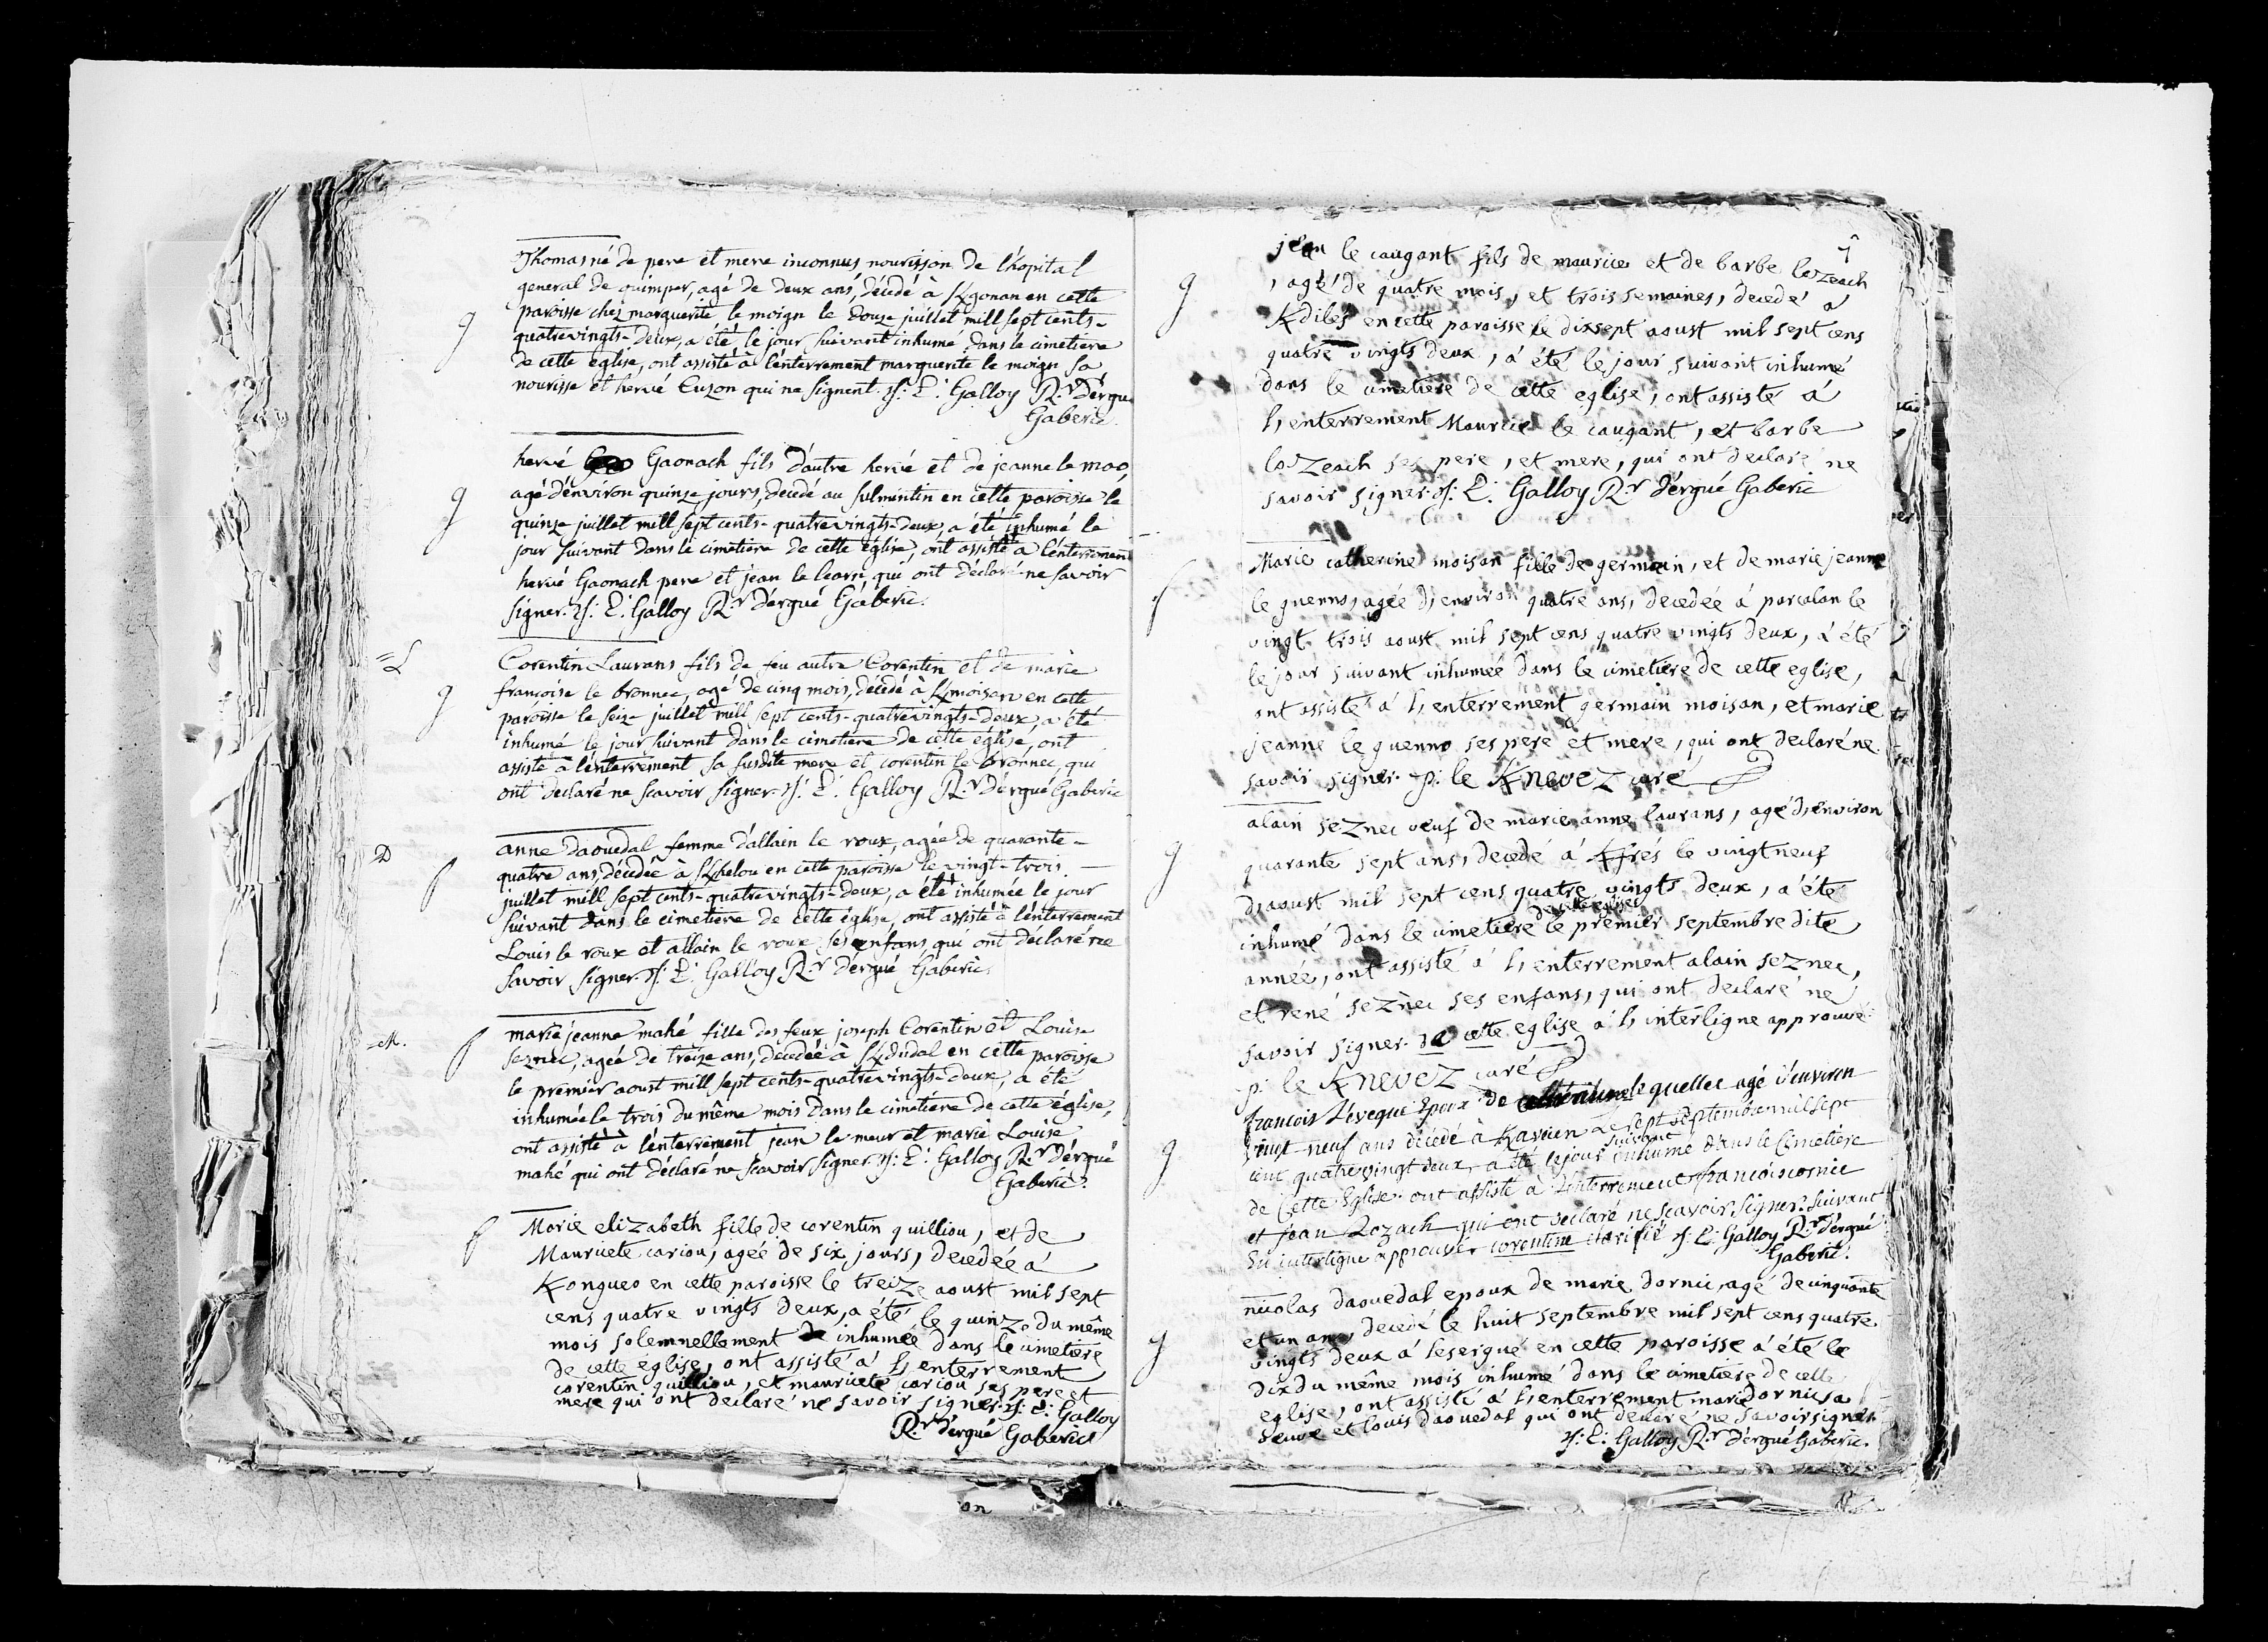 Thomas né de pere et mere inconnus nourisson de l'hopital
general de quimper, agé de deux ans, décédé à Kgonan en cette
paroisse chez marguerite le moign le douze juillet mill sept cents-
quatrevingts-deux, a été le jour suivant inhumé dans le cimetiere
de cette eglise, ont assisté à l'enterrement marguerite le moign sa
nourisse et hervé Euzon qui ne signent. Galloy R.r d'ergué
Gaberic.
g
hervé Gaonach fils d'autre hervé et de jeanne le mao,
agé d'environ quinze jours, decedé au fulmintin en cette paroisse le
quinze juillet mill sept cents-quatrevingts-deux, a été inhumé le
jour suivant dans le cimetiere de cette église, ont assisté à l'enterrement
hervé Gaonach pere et jean le learn, qui ont déclaré ne savoir
signer. Galloy R.r d'ergué Gaberic.
g
=L
Corentin Laurans fils de feu autre Corentin et de marie
françoise le bronnec, agé de cinq mois, décédé à Kmoisan en cette
paroisse le seize juillet mill sept cents-quatrevingts-deux, a été
inhumé le jour suivant dans le cimetiere de cette église, ont
assisté à l'enterrement sa susdite mere et corentin le bronnec, qui
ont declaré ne scavoir signer. Galloy R.r d'ergué Gaberic
g
D
anne daouedal femme d'allain le roux, agée de quarante-
quatre ans, décédée à Khelou en cette paroisse le vingt-trois
juillet mill sept cents-quatrevingts-deux, a été inhumée le jour
suivant dans le cimetiere de cette église, ont assisté à l'enterrement
Louis le roux et allain le roux ses enfans, qui ont déclaré ne
savoir signer. Galloy R.r d'ergué Gaberic.
f
M.
marie jeanne mahé fille des feux joseph Corentin et Louise
seznec, agée de treize ans, decedée à Kdudal en cette paroisse
le premier aoust mill sept cents-quatrevingts-deux, a été
inhumée le trois du même mois dans le cimetiere de cette église,
ont assisté à l'enterrement jean le meur et marie Louise
mahé qui ont déclaré ne scavoir signer. Galloy R.r d'ergué
Gaberic.
f
Marie elizabeth fille de corentin quilliou, et de
Mauricete cariou, agée de six jours, decedée á
Kongueo en cette paroisse le treize aoust mil sept
cens quatre vingts deux, a été le quinze du même
mois solemnellement inhumée dans le cimetiere
de cette église, ont assisté á l'enterrement
corentin quilliou, et mauricete cariou ses pere et
mere qui ont declaré ne savoir signer. Galloy
R.r d'ergué Gaberic
f
on
jean le caugant fils de maurice et de barbe lozeach
, agé de quatre mois, et trois semaines, decedé á
Kdilés en cette paroisse le dixsept aoust mil sept cens
quatre vingts deux, á été le jour suivant inhumé
dans le cimetiere de cette eglise, ont assisté á
l'enterrement Maurice le caugant, et barbe
lozeach ses pere, et mere, qui ont declaré ne
savoir signer. Galloy R.r d'ergué Gaberic
g
Marie catherine moisan fille de germain, et de marie jeanne
le guenno, agée d'environ quatre ans, decedée á parcalan le
vingt trois aoust mil sept cens quatre vingts deux, á été
le jour suivant inhumeé dans le cimetiere de cette eglise,
ont assisté á l'enterrement germain moisan, et marie
jeanne le guenno ses pere et mere, qui ont declaré ne
savoir signer. p: le Knevez curé
f
alain seznec veuf de marie anne laurans, agé d'environ
quarante sept ans, decedé á Kfrés le vingt neuf
d'aoust mil sept cens quatre vingts deux, a été
de cette eglise
inhumé dans le cimetiere le premier septembre dite
année, ont assisté á l'enterrement alain seznec,
et rené seznec ses enfans, qui ont declaré ne
savoir signer. de cette eglise á l'interligne approuvé
p: le Knevez curé
g
francois Léveque Epoux de le quellec agé d'environ
vingt-neuf ans décédé à Kavuen le sept septembre mil sept
cent quatrevingt deux, a été le jour suivant inhumé dans le Cimetiere
de Cette Eglise. ont assisté à l'enterrement francois cornic
et Jean Lozach qui ont declaré ne scavoir signer. suivant
En interligne approuvé. corentine Galloy R.r d'ergué
Gaberic.
g
nicolas daouedal epoux de marie dornic, agé de cinquante
et un ans, decedé le huit septembre mil sept cens quatre
vingts deux á lesergué en cette paroisse á été le
dix du même mois inhumé dans le cimetiere de cette
eglise, ont assisté á l'enterrement marie dornic sa
veuve et louis daouedal qui ont declaré ne savoir signer.
Galloy R.r d'ergué Gaberic.
g